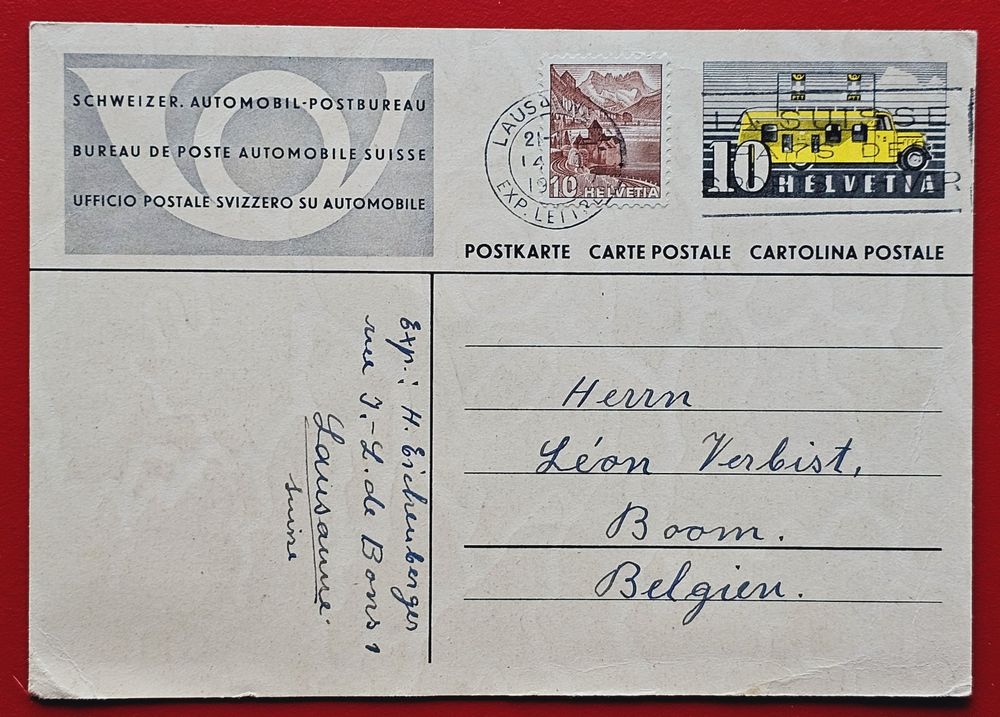 SCHWEIZER. AUTOMOBIL-POSTBUREAU
BUREAU DE POSTE AUTOMOBILE SUISSE
UFFICIO POSTALE SVIZZERO SU AUTOMOBILE
LAUSANNE
21-
14
19
EXP. LETTR.
10 HELVETIA
LA SUISSE
PAYS DE
10 HELVETIA
POSTKARTE CARTE POSTALE CARTOLINA POSTALE
Exp.: H. Eichenberger
rue J.-L. de Bons 1
Lausanne
Suisse
Herrn
Léon Verbist,
Boom.
Belgien.